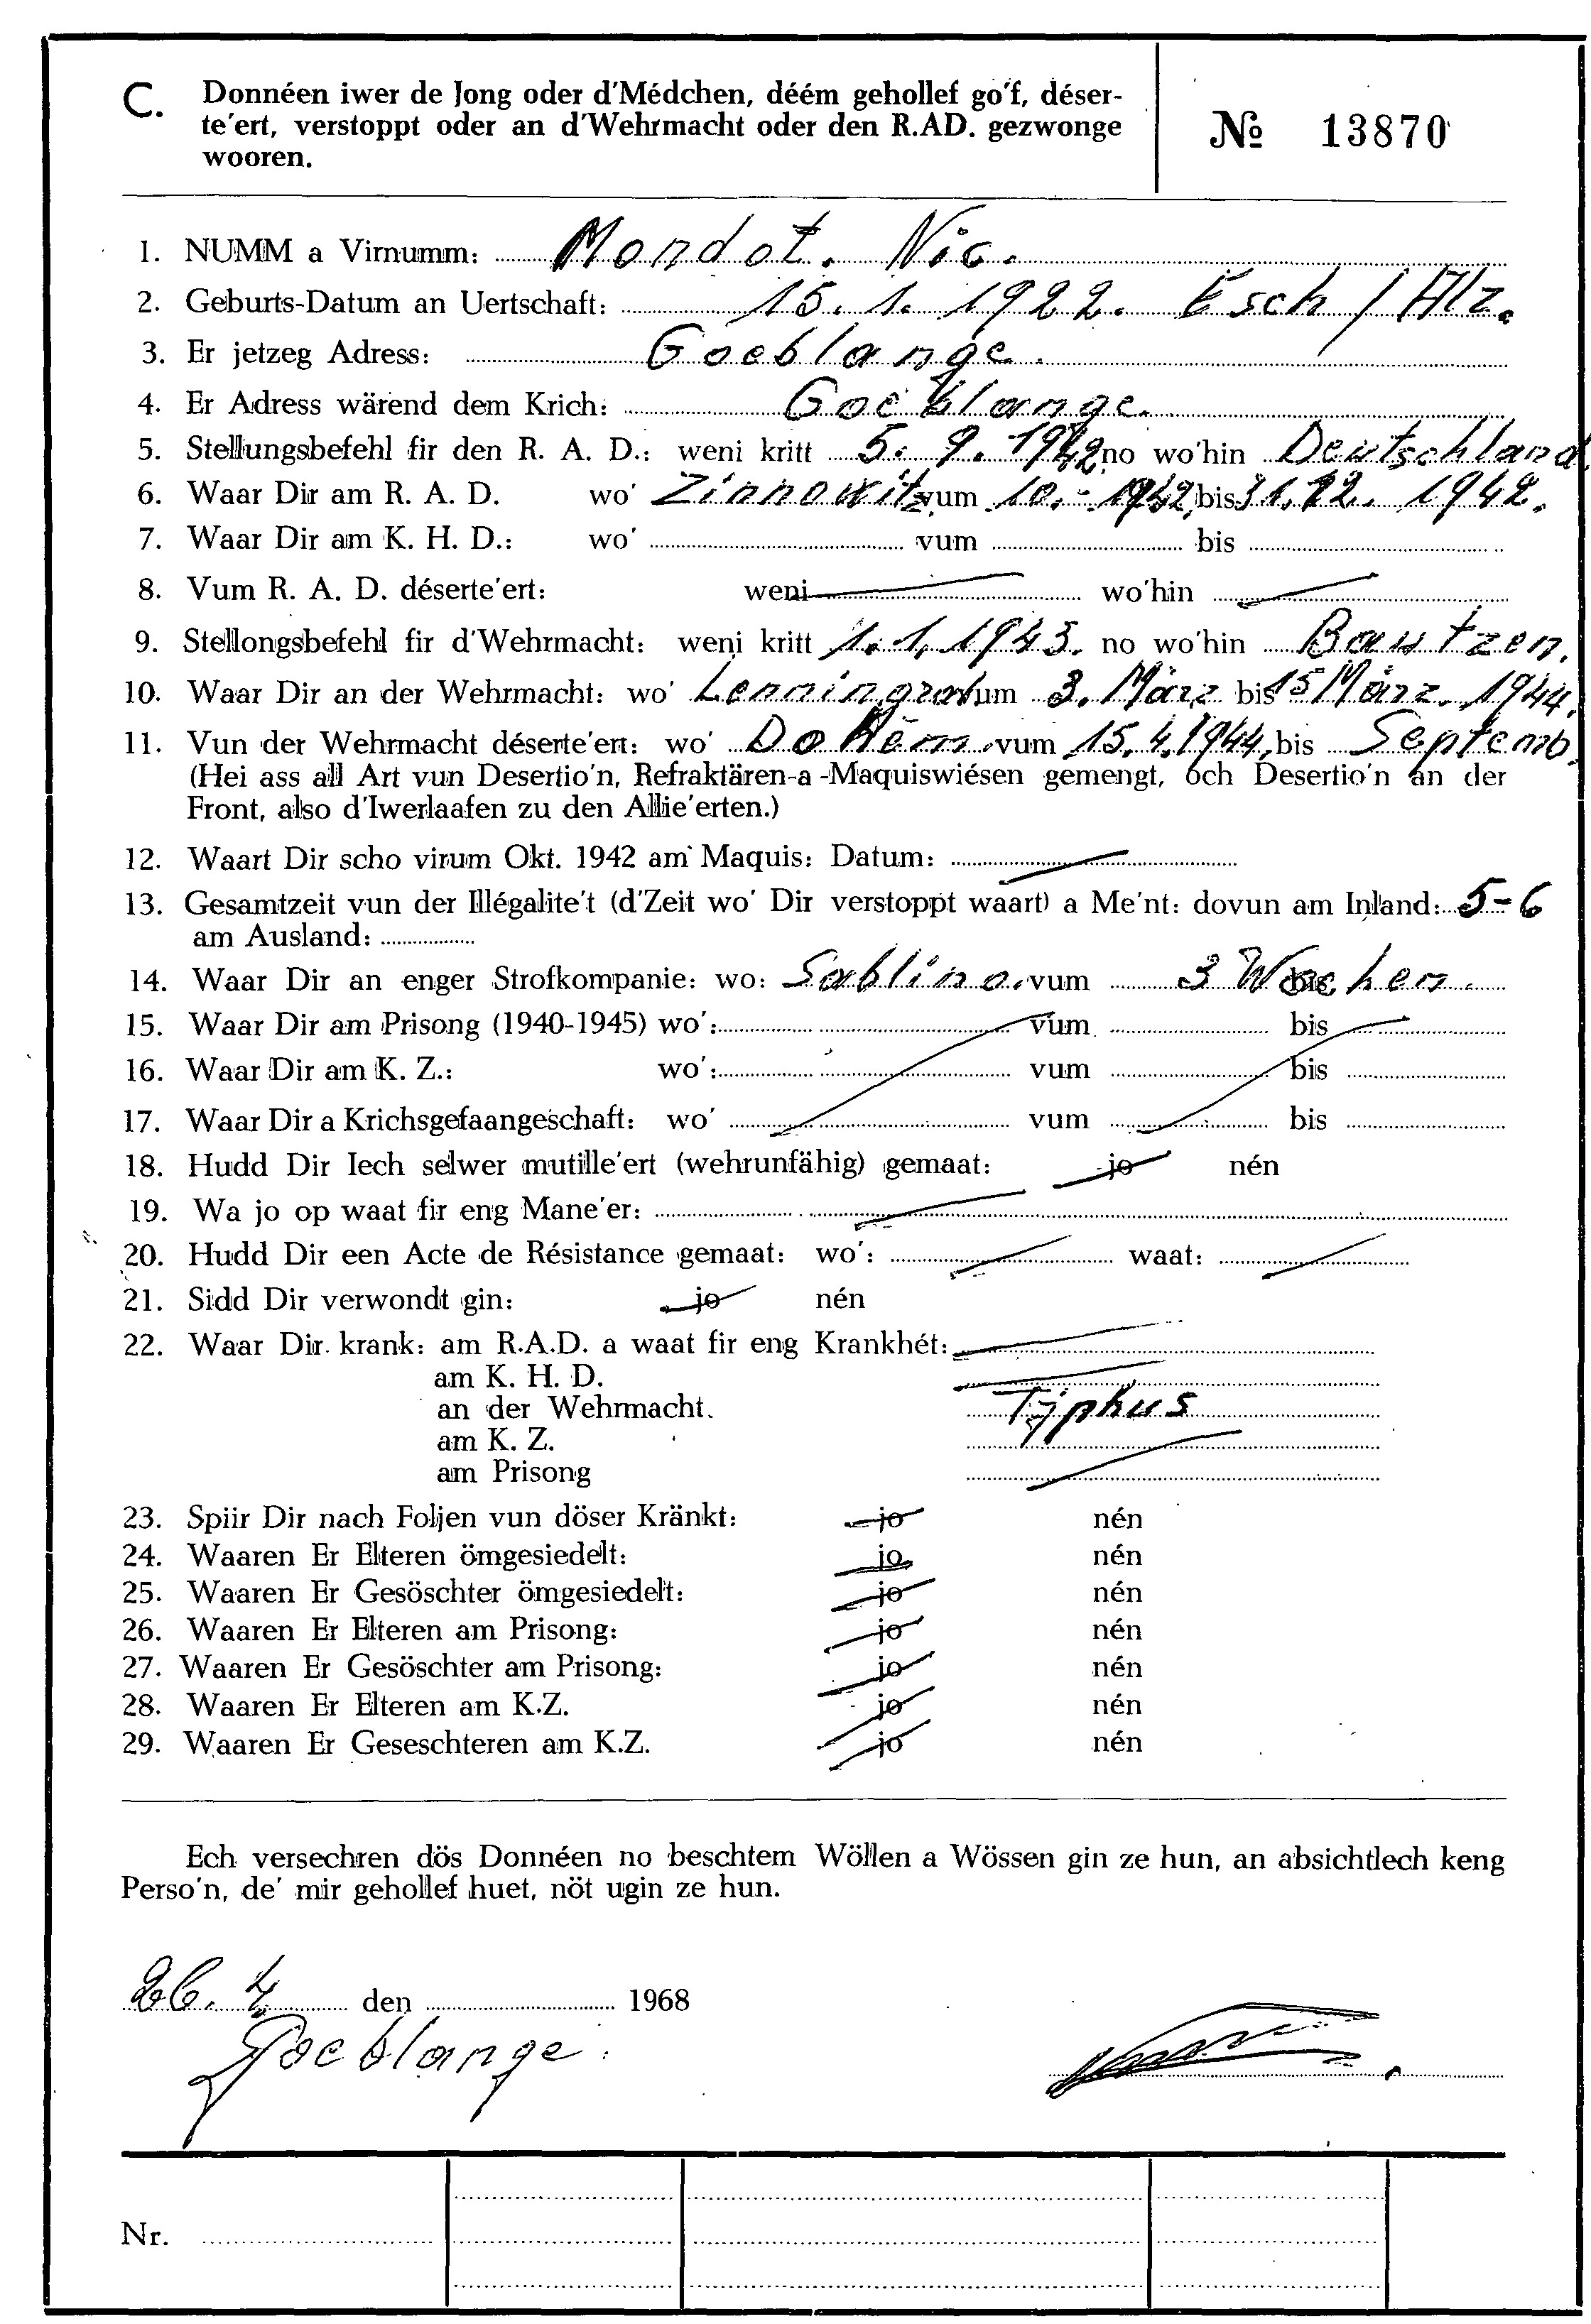 C. Donnéen iwer de Jong oder d'Médchen, déém gehollef go'f, déser-
te'ert, verstoppt oder an d'Wehrmacht oder den R.AD. gezwonge
wooren.
№ 13870
1. NUMM a Virnumm: Mondot. Nic.
2. Geburts-Datum an Uertschaft: 15. 1. 1922. Esch / Alz.
3. Er jetzeg Adress: Goeblange.
4. Er Adress wärend dem Krich: Goeblange.
5. Stellungsbefehl fir den R. A. D.: weni kritt 5. 9. 1942 no wo'hin Deutschland.
6. Waar Dir am R. A. D. wo' Zinnowitz vum 10. - 1942, bis 31.12. 1942.
7. Waar Dir am K. H. D.: wo' vum bis
8. Vum R. A. D. déserte'ert: weni wo'hin
9. Stellongsbefehl fir d'Wehrmacht: weni kritt 1. 1. 1943. no wo'hin Bautzen.
10. Waar Dir an der Wehrmacht: wo' Lenningrad vum 3. März bis 15 März. 1944.
11. Vun der Wehrmacht déserte'ert: wo' Dohem. vum 15. 4. 1944, bis Septemb.
(Hei ass all Art vun Desertio'n, Refraktären-a -Maquiswiésen gemengt, och Desertio'n an der
Front, also d'Iwerlaafen zu den Allie'erten.)
12. Waart Dir scho virum Okt. 1942 am Maquis: Datum:
13. Gesamtzeit vun der Illégalite't (d'Zeit wo' Dir verstoppt waart) a Me'nt: dovun am Inland: 5-6
am Ausland:
14. Waar Dir an enger Strofkompanie: wo: Sablino. vum 3 Wochen. bis
15. Waar Dir am Prisong (1940-1945) wo': vum bis
16. Waar Dir am K. Z.: wo': vum bis
17. Waar Dir a Krichsgefaangeschaft: wo' vum bis
18. Hudd Dir Iech selwer mutille'ert (wehrunfähig) gemaat: jo nén
19. Wa jo op waat fir eng Mane'er:
20. Hudd Dir een Acte de Résistance gemaat: wo': waat:
21. Sidd Dir verwondt gin: jo nén
22. Waar Dir krank: am R.A.D. a waat fir eng Krankhét:
am K. H. D.
an der Wehrmacht. Typhus
am K. Z.
am Prisong
23. Spiir Dir nach Foljen vun döser Kränkt: jo nén
24. Waaren Er Elteren ömgesiedelt: jo nén
25. Waaren Er Gesöschter ömgesiedelt: jo nén
26. Waaren Er Elteren am Prisong: jo nén
27. Waaren Er Gesöschter am Prisong: jo nén
28. Waaren Er Elteren am K.Z. jo nén
29. Waaren Er Geseschteren am K.Z. jo nén
Ech versechren dös Donnéen no beschtem Wöllen a Wössen gin ze hun, an absichtlech keng
Perso'n, de' mir gehollef huet, nöt ugin ze hun.
26. 4. den 1968
Goeblange.
Nr.